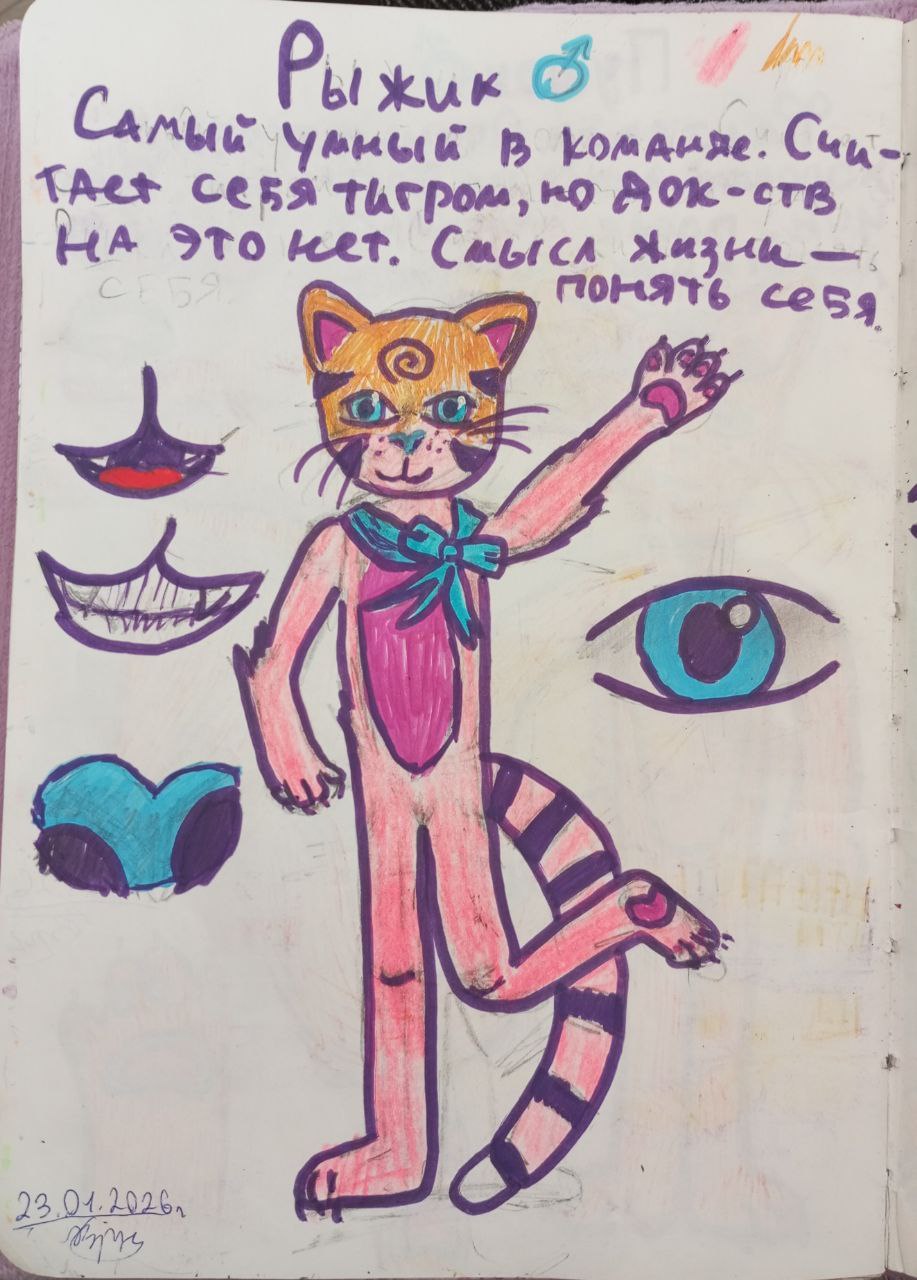 Рыжик ♂
Самый умный в команде. Счи-
тает себя тигром, но док-ств
на это нет. Смысл жизни —
понять себя.
СЕБЯ
23.01.2026г